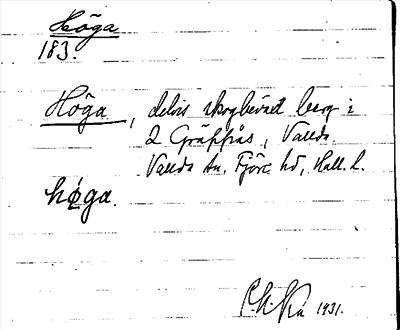 Höga
183.
Höga, delvis skogbeväxt berg i
2 Gräppås, Vallda
Vallda sn, Fjäre hd, Hall. l.
høga.
1931.